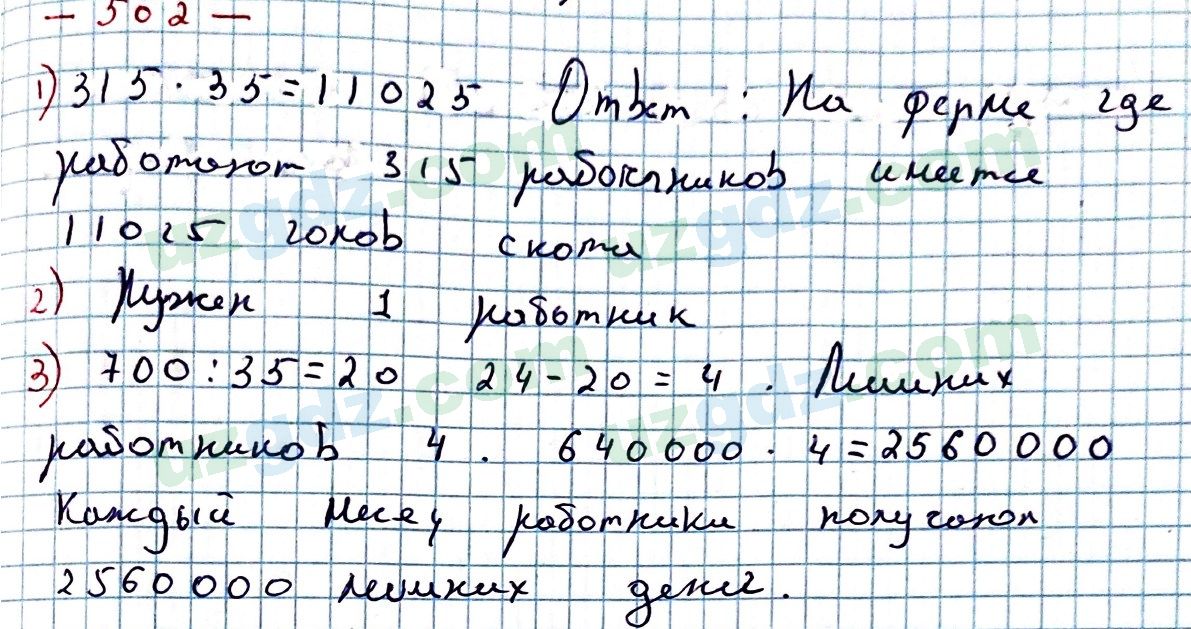 - 502 -
1) 315 · 35 = 11025 Ответ : На ферме где
работают 315 работников имеется
11025 голов скота
2) Нужен 1 работник
3) 700 : 35 = 20 24 - 20 = 4 . Лишних
работников 4 . 640000 · 4 = 2560000
Каждый месяц работники получают
2560000 лишних денег.
uzgdz.com uzgdz.com
uzgdz.com uzgdz.com